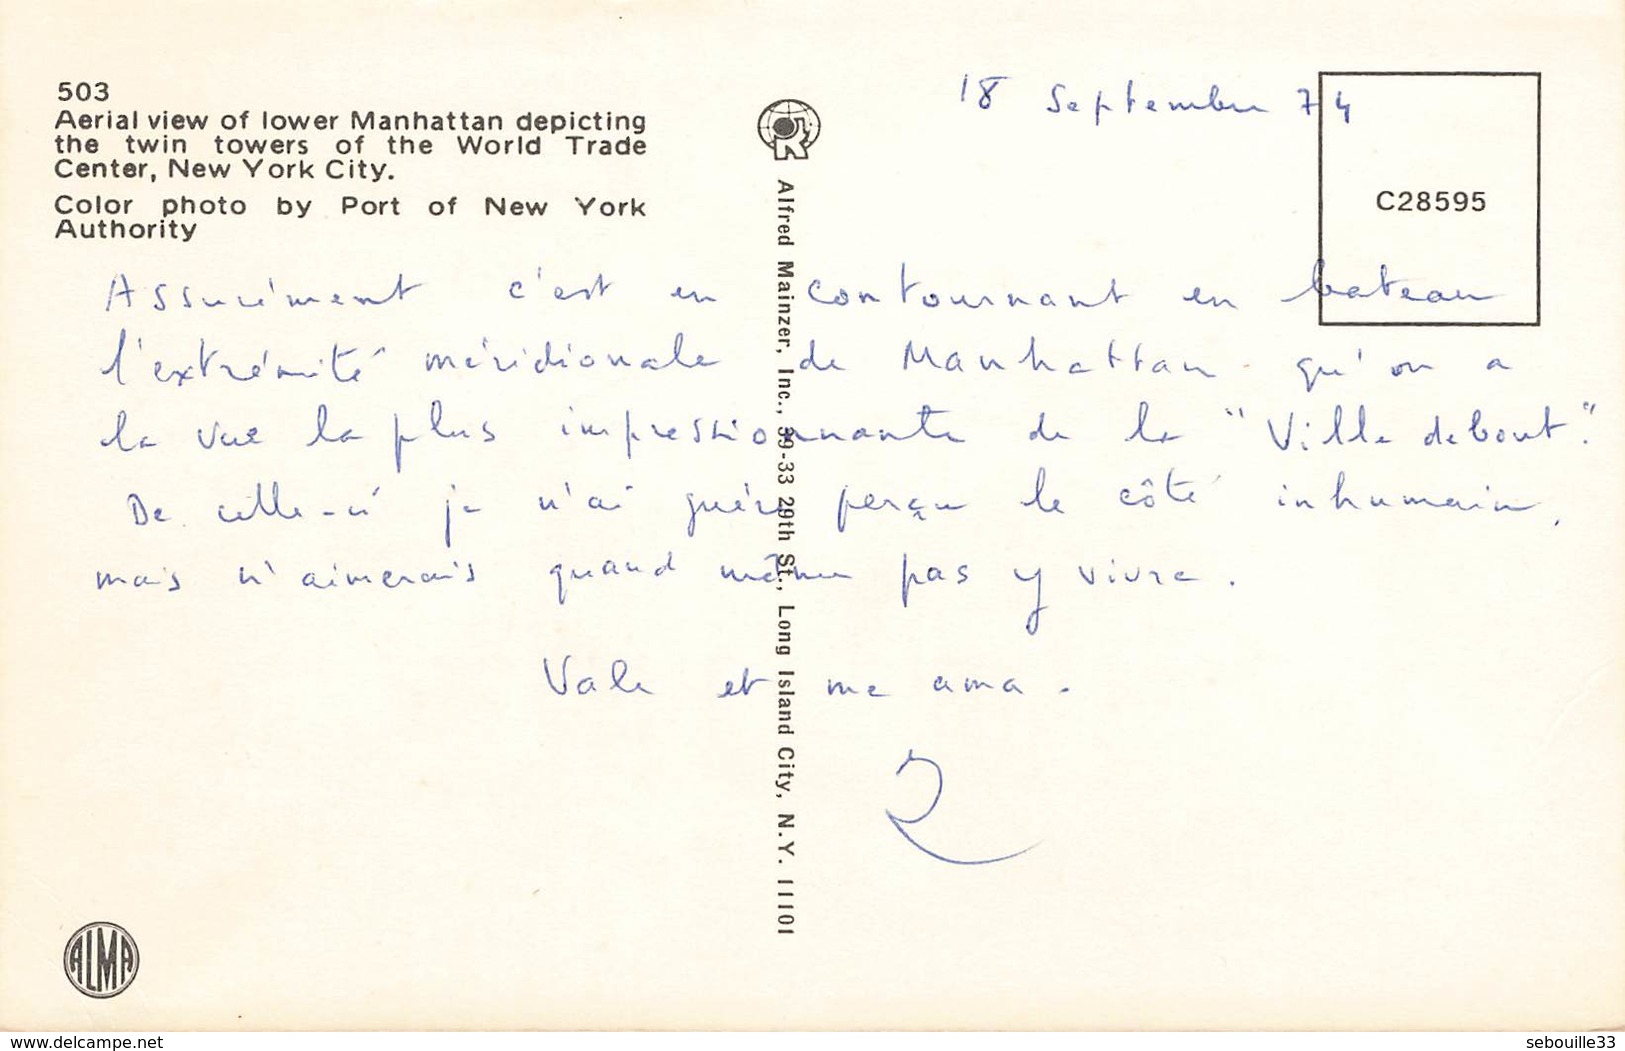 503
Aerial view of lower Manhattan depicting
the twin towers of the World Trade
Center, New York City.
Color photo by Port of New York
Authority
18 Septembre 74
C28595
Alfred Mainzer, Inc., 39-33 29th St., Long Island City, N.Y. 11101
Assurément c'est en contournant en bateau
l'extrémité méridionale de Manhattan qu'on a
la vue la plus impressionnante de la "Ville debout".
De celle-ci je n'ai guère perçu le côté inhumain,
mais n'aimerais quand même pas y vivre.
Vale et me ama.
R
ALMA
www.delcampe.net
sebouille33